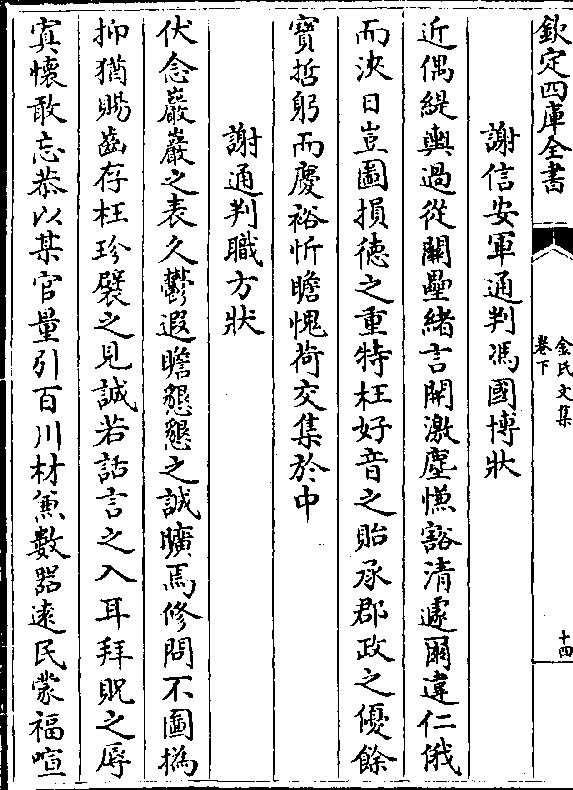 欽定四庫全書
金氏文集
卷下
十四
謝信安軍通判馮國博狀
近偶緹輿過從關壘緒言開激塵憊豁清遽爾違仁俄
而浹日豈圖損德之重特枉好音之貽承郡政之優餘
寶哲躬而慶裕忻瞻愧荷交集於中
謝通判職方狀
伏念巖巖之表久鬱遐瞻懇懇之誠曠焉修問不圖撝
抑猶賜齒存枉珍襞之見誠若話言之入耳拜貺之辱
寘懷敢忘恭以某官量引百川材兼數器逺民蒙福喧